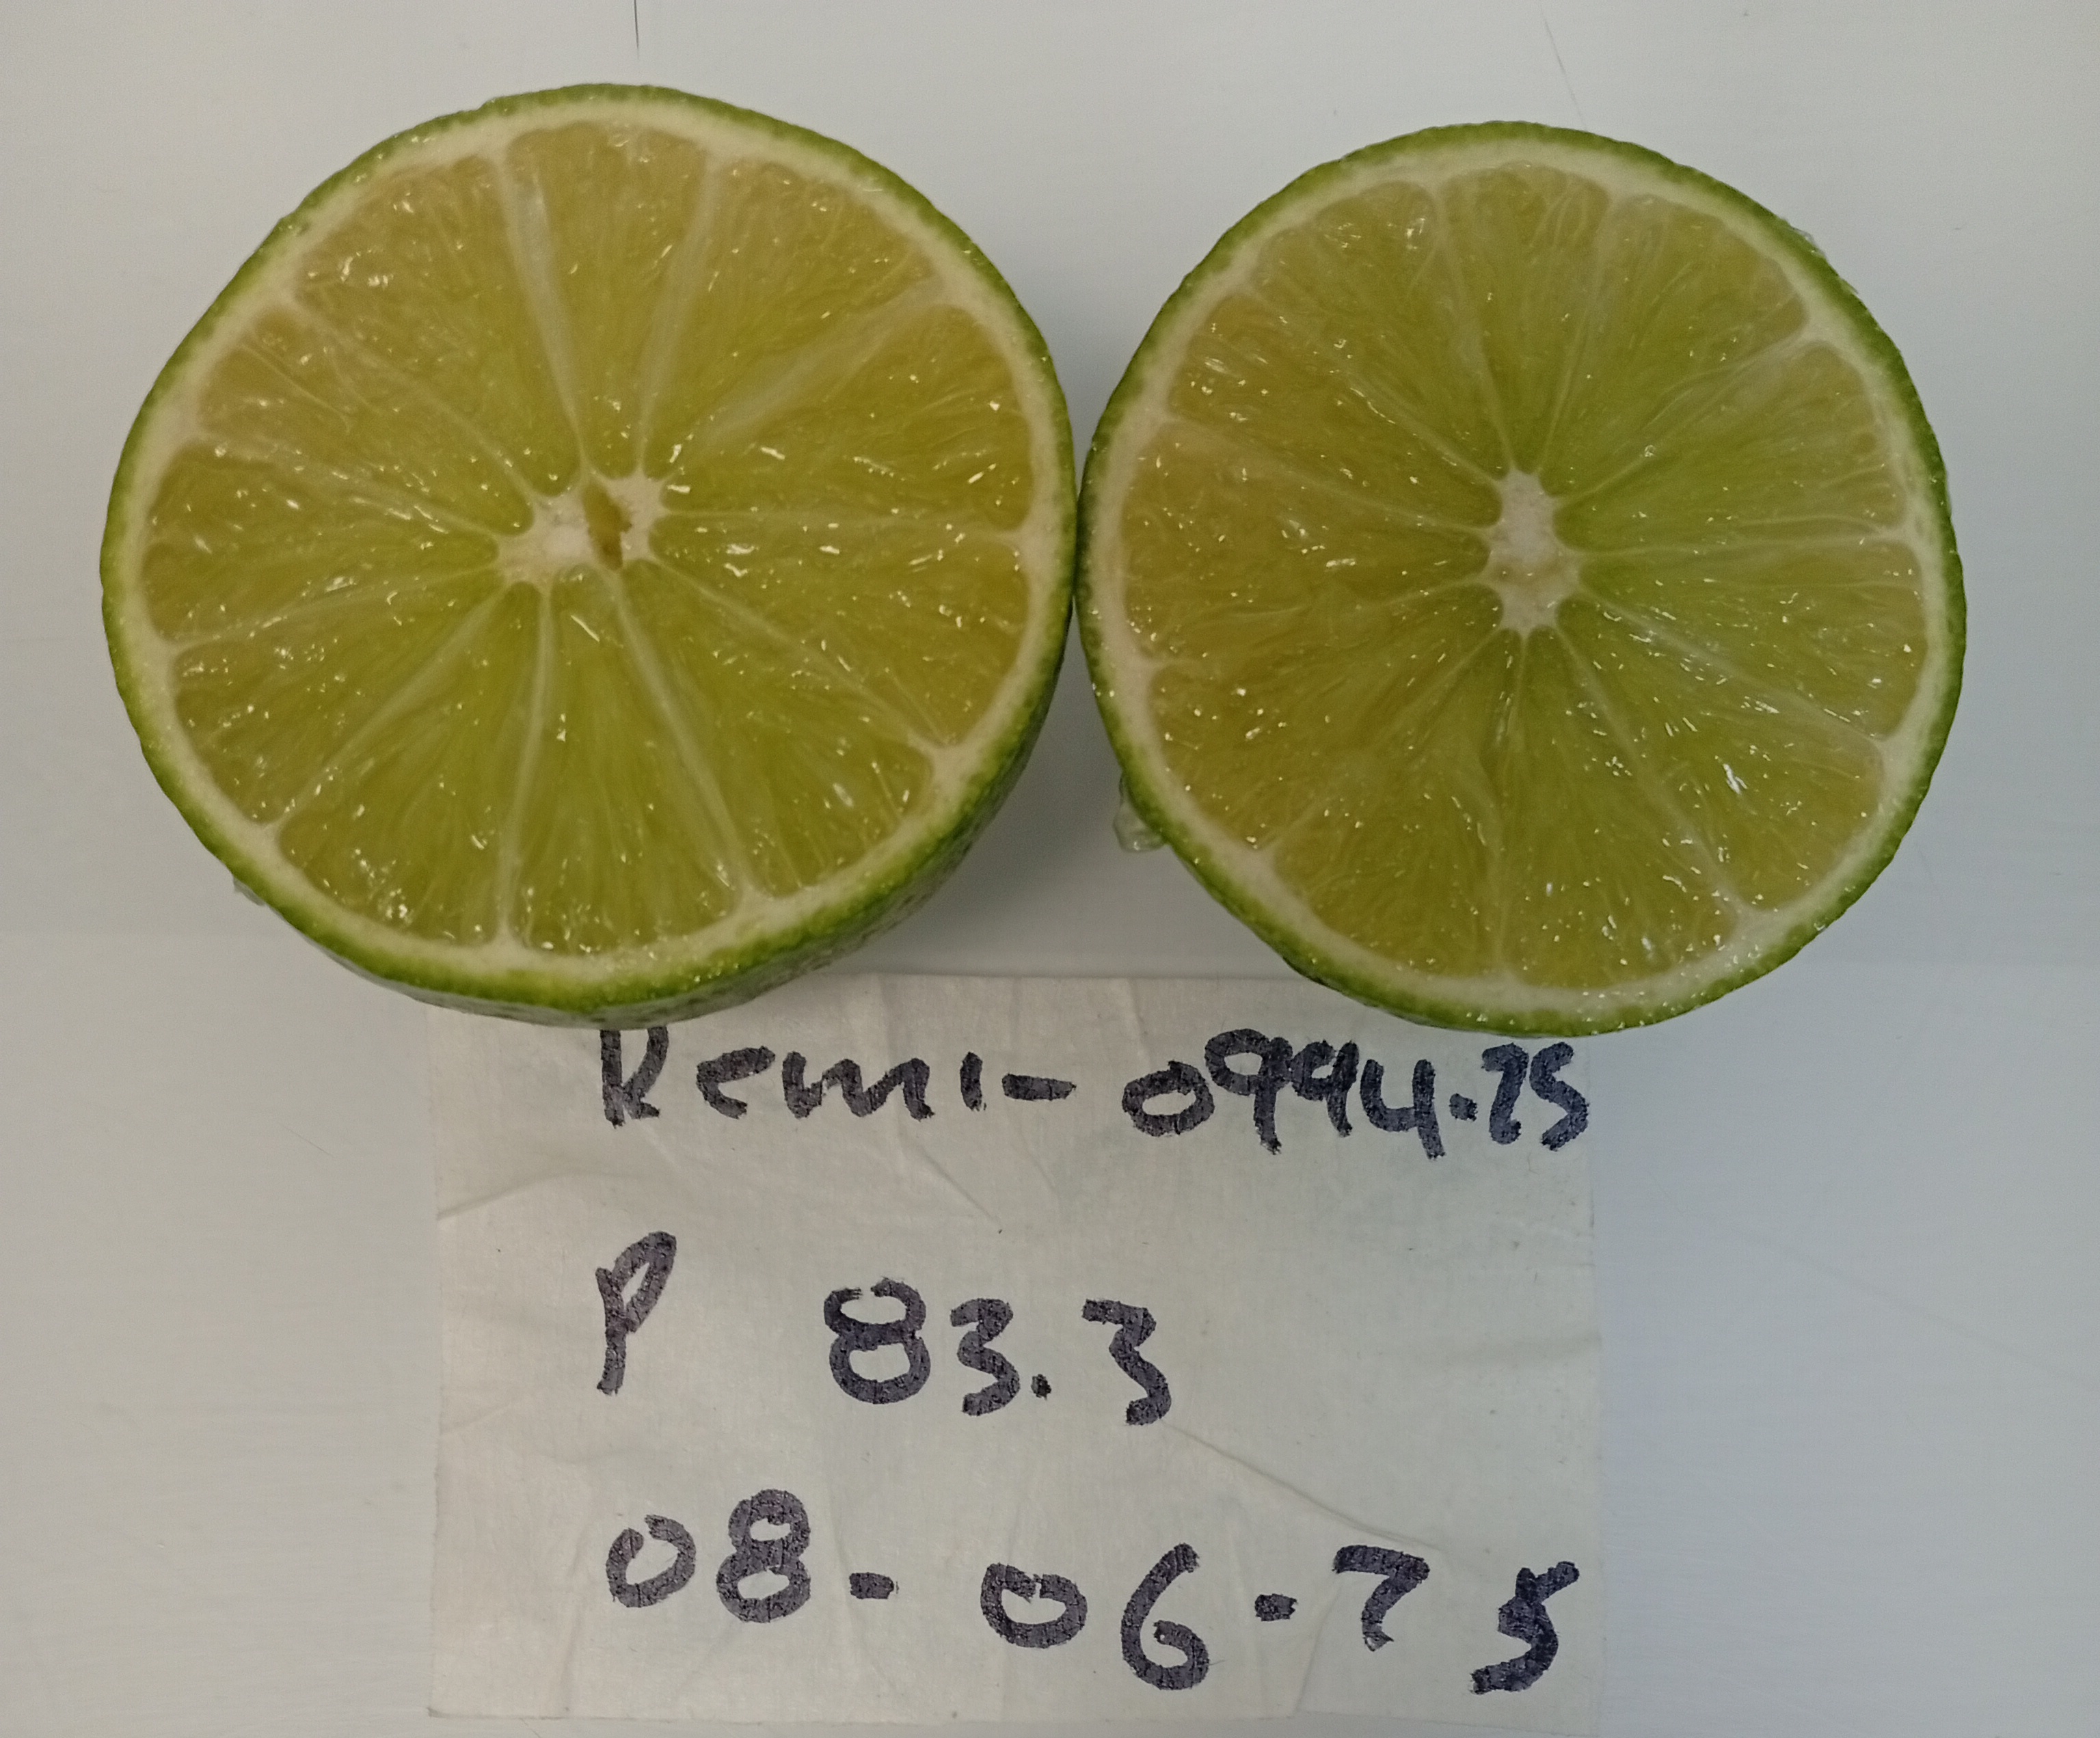 Remi-0994.25
P 83.3
08-06-25